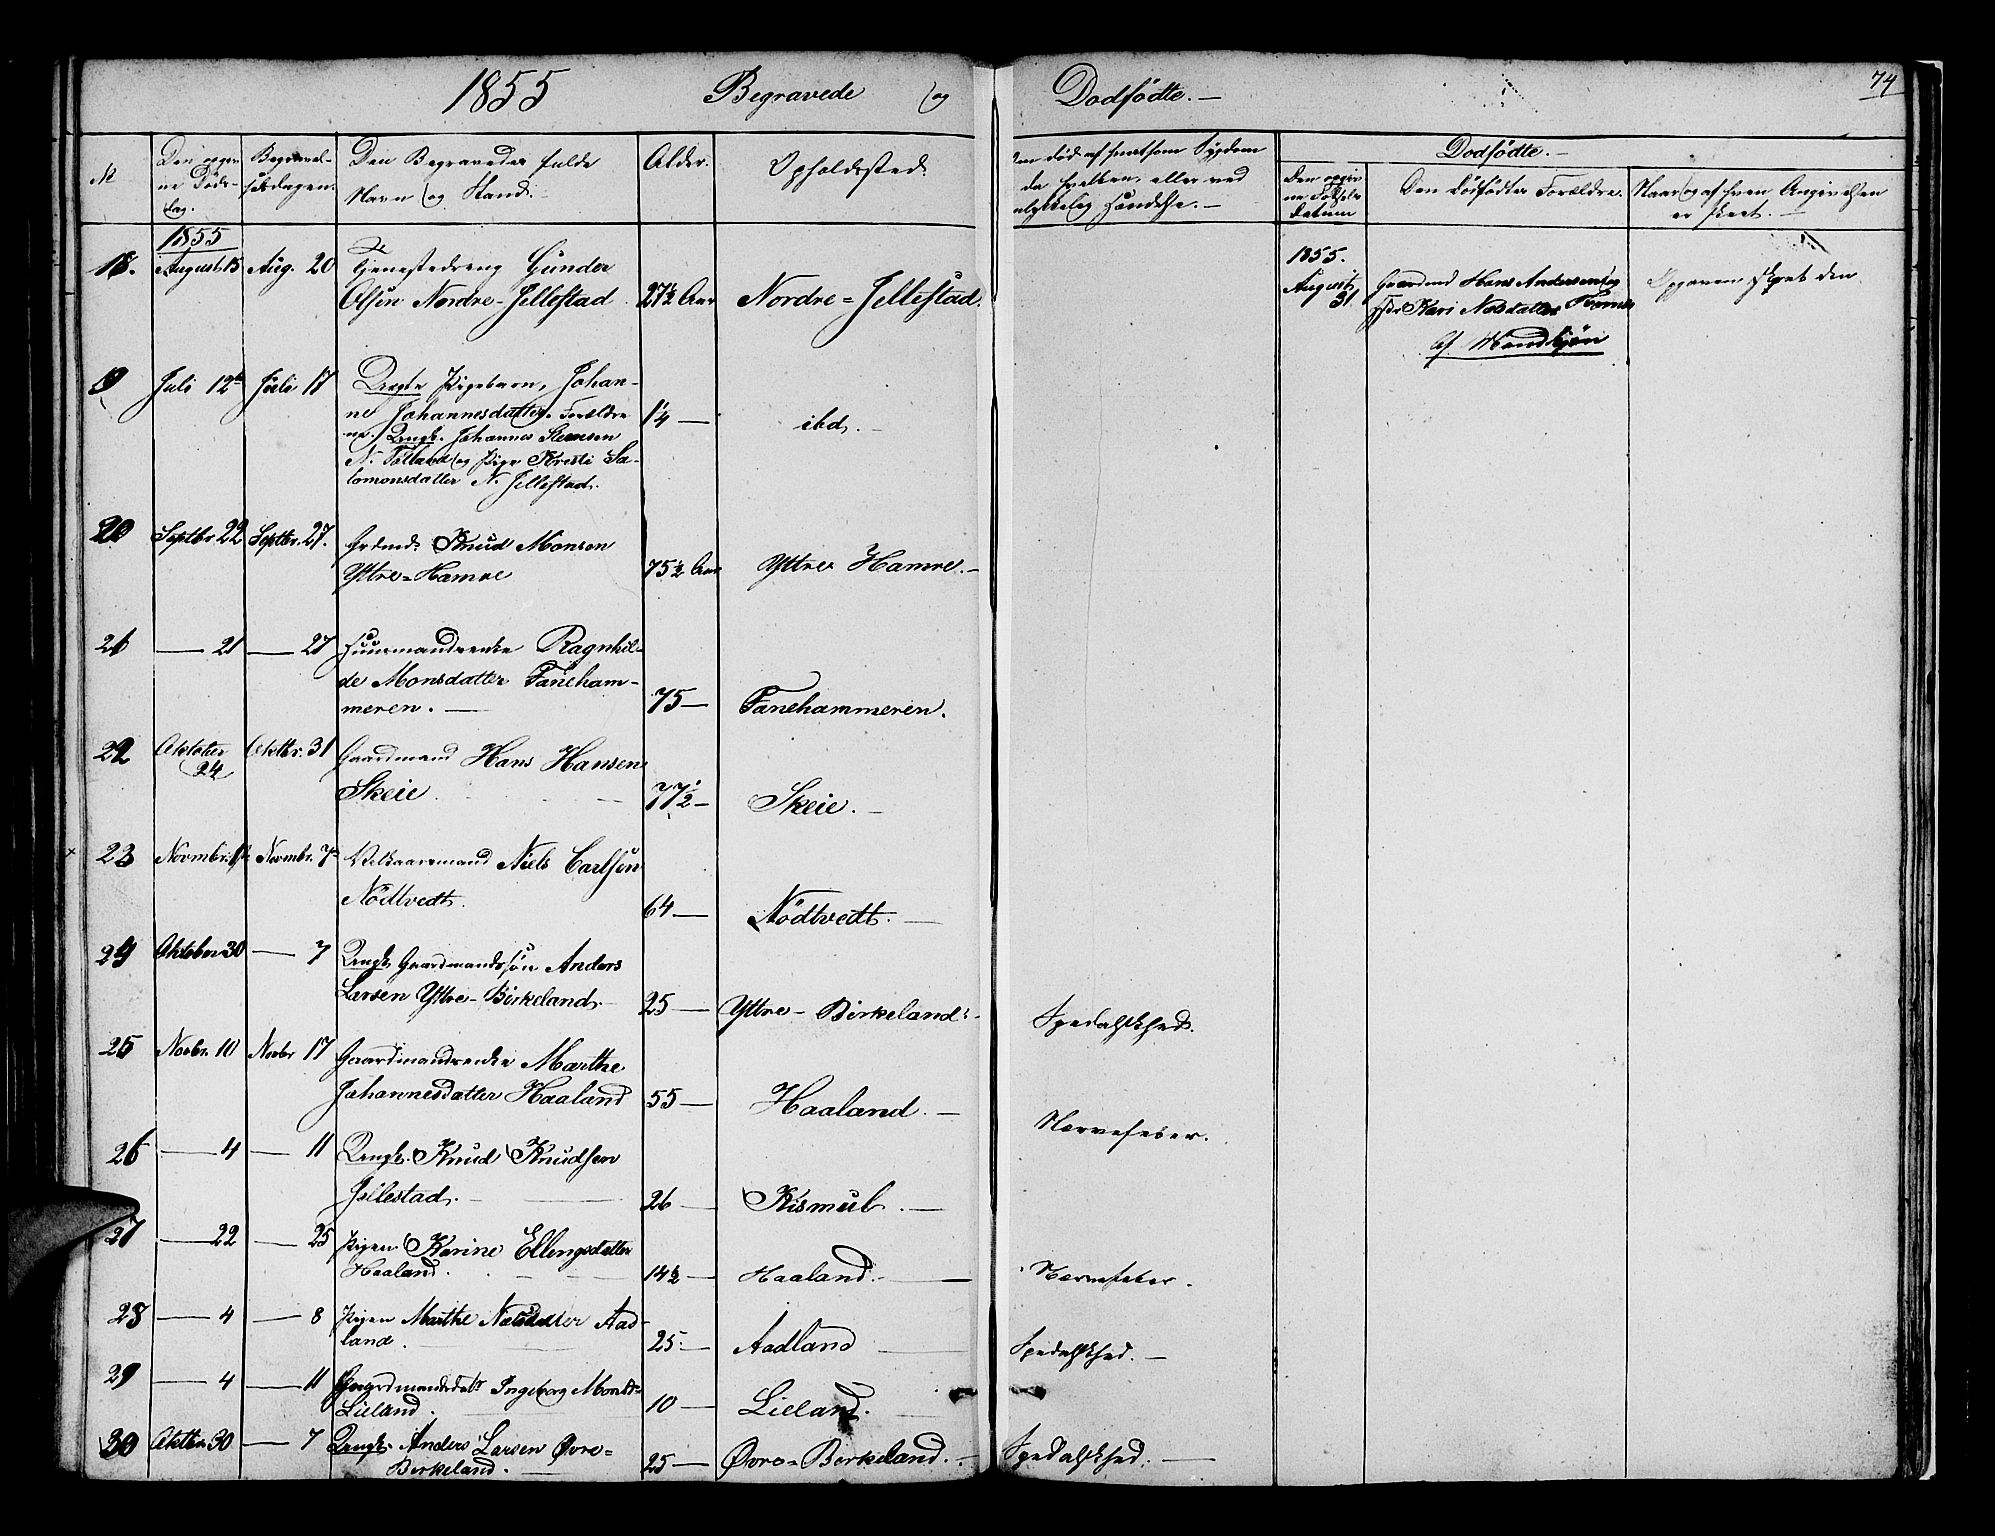 1855 Begravede og Dodfödte. 74
№
Den opgiv
ne Döds-
dag.
Begravel-
sesdagen.
Den Begravedes fulde
Navn og Stand.
Alder.
Opholdssted.
Om död af smitsom Sygdom
da hvilken, eller ved
ulykkelig Hændelse.
Dodfödte.
Den opgiv
ne Födsels
Datum
Den Dödfödtes Forældre.
Naar og af hvem Angivelsen
er skeet.
1855
18. August 15 Aug. 20 Tjenestedreng Gunder
Olsen Nordre-Jellestad 27½ Aar Nordre=Jellestad.
1855.
August
31
Gaardmd Hans Andersen og
Hstr Kari Nilsdatter
Af Mandkjön
Opgaven skeet den
19 Juli 12te Juli 17 Drægte Pigebarn, Johan-
ne Johannesdatter. Forældre
ne: Ungk. Johannes Steensen
N. Titland og Pige Kresti Sa-
lomonsdatter N. Jellestad.
1¼ — ibd.
20 Septbr 22 Septbr. 27. Grdmd. Knud Monsen
Yttre=Hamre 75½ Aar Yttre Hamre. —
21 — 21 — 27 Huusmandsenke Ragnhil-
de Monsdatter Faneham-
meren. — 75 — Fanehammeren.
22 Oktober
24 Oktbr. 31 Gaardmand Hans Hansen
Skeie 77½ — Skeie. —
23 Novmbr. 1 Novmbr. 7 Velkaarsmand Niels Carlsen
Nödtvedt. 64 — Nödtvedt. —
24 Oktober 30 — 7 Ungk. Gaardmandssön Anders
Larsen Yttre-Birkeland. 25 — Yttre-Birkeland. Spedalskhed.
25 Novbr. 10 Novbr 17 Gaardmandsenke Marthe
Johannesdatter Haaland 55 — Haaland. — Nervefeber.
26 — 4 — 11 Ungk. Knud Knudsen
Jellestad. — 26 — Kismul. —
27 — 22 — 25 Pigen Karine Ellingsdatter
Haaland. 14½ — Haaland. — Nervefeber.
28 — 4 — 8 Pigen Marthe Nilsdatter Aad-
land. 25. — Aadland Spedalskhed. —
29 — 4 — 11 Gaardmandsdatr Ingeborg Monsd-
Lieland. 10 — Lieland.
30 Oktbr. 30 — 7 Ungk. Anders Larsen Øvre=
Berkeland. — 25 — Øvre=Berkeland. — Spedalskhed. —